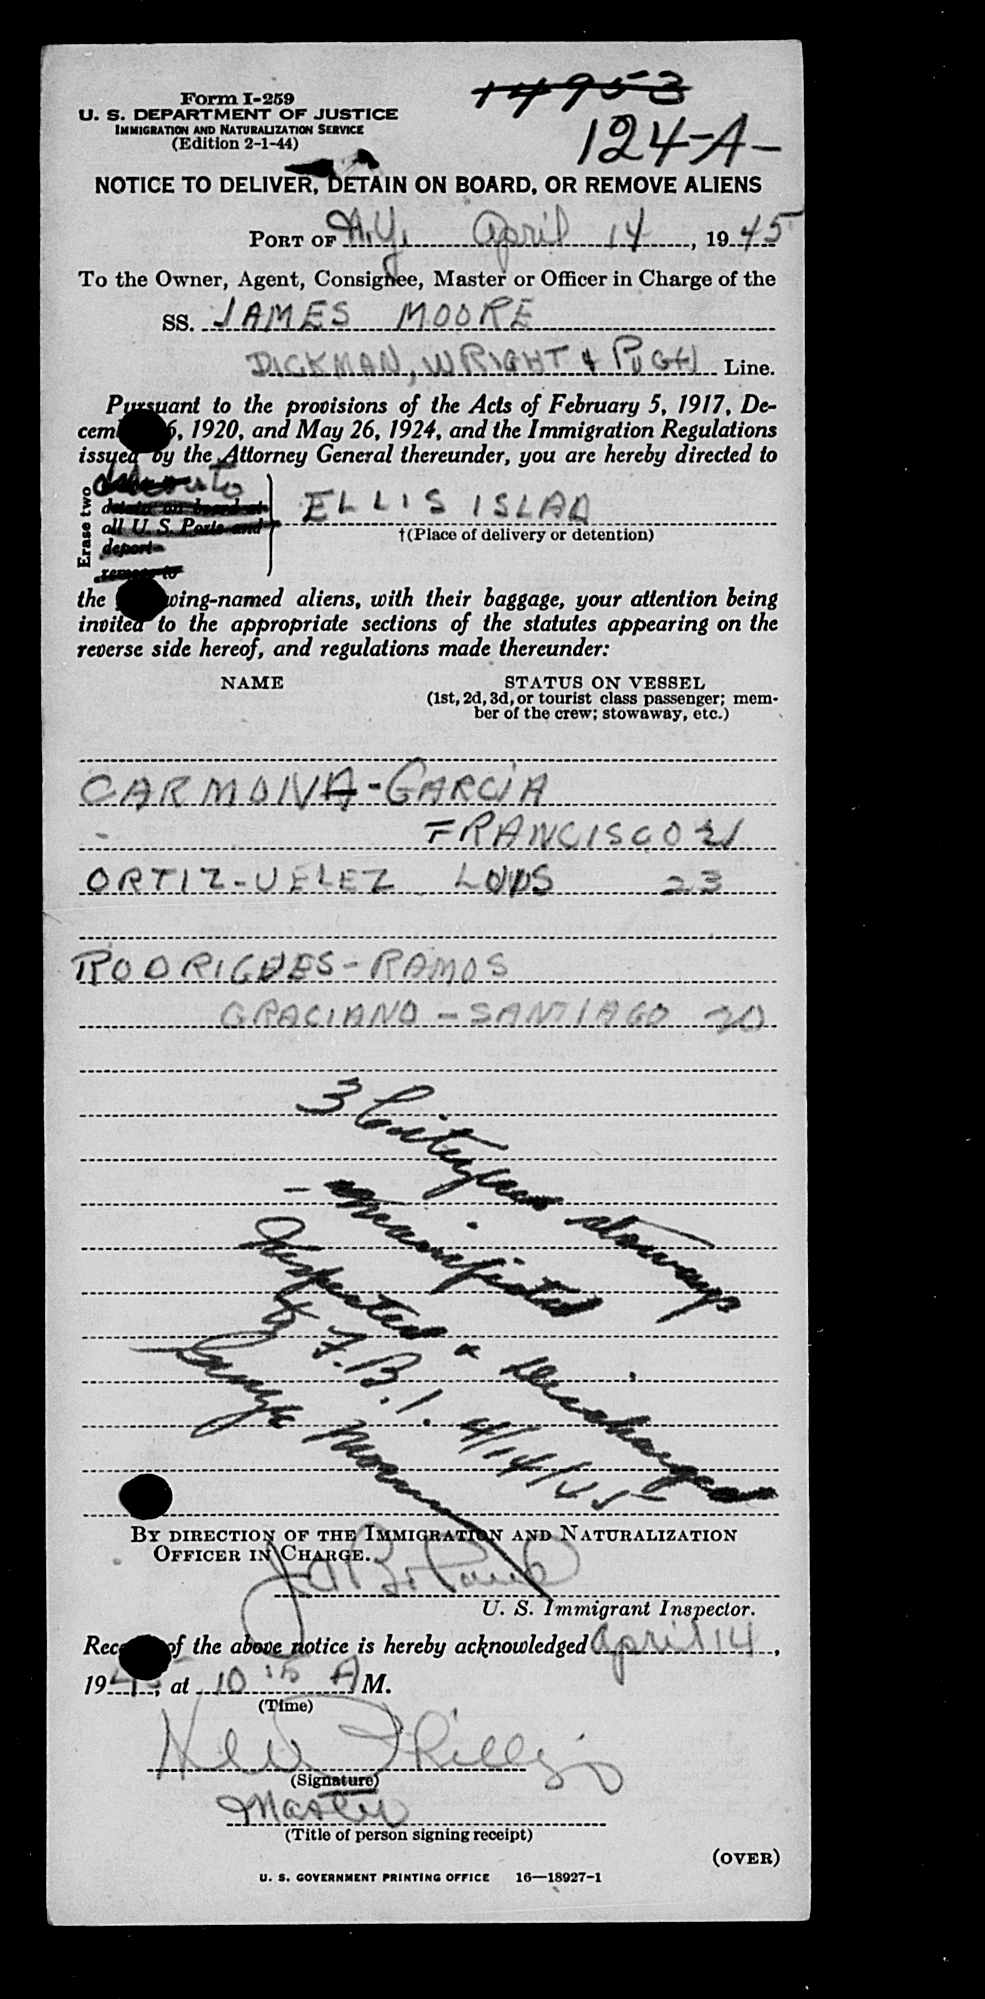 14953
124-A-
Form I-259
U. S. DEPARTMENT OF JUSTICE
IMMIGRATION AND NATURALIZATION SERVICE
(Edition 2-1-44)
NOTICE TO DELIVER, DETAIN ON BOARD, OR REMOVE ALIENS
PORT OF N.Y. April 14, 1945
To the Owner, Agent, Consignee, Master or Officer in Charge of the
SS. JAMES MOORE
DICKMAN, WRIGHT & PUGH Line.
Pursuant to the provisions of the Acts of February 5, 1917, De-
cem 6, 1920, and May 26, 1924, and the Immigration Regulations
issued by the Attorney General thereunder, you are hereby directed to
Erase two
detain on board at
all U. S. Ports and
deport
remove to
ELLIS ISLAD
†(Place of delivery or detention)
the wing-named aliens, with their baggage, your attention being
invited to the appropriate sections of the statutes appearing on the
reverse side hereof, and regulations made thereunder:
NAME STATUS ON VESSEL
(1st, 2d, 3d, or tourist class passenger; mem-
ber of the crew; stowaway, etc.)
CARMONA-GARCIA
FRANCISCO 21
ORTIZ-VELEZ LUIS 23
RODRIGUES-RAMOS
GRACIANO-SANTIAGO 20
3 Citizen stoways
- manifested
Inspected & discharged
by F.B.I. 4/14/45
BY DIRECTION OF THE IMMIGRATION AND NATURALIZATION
OFFICER IN CHARGE.
U. S. Immigrant Inspector.
Rec of the above notice is hereby acknowledged April 14,
1945, at 10:15 A M.
(Time)
Phillips
(Signature)
Master
(Title of person signing receipt)
(OVER)
U. S. GOVERNMENT PRINTING OFFICE 16—18927-1